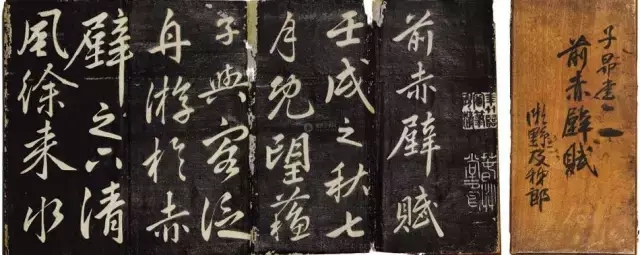 子昂
前赤壁賦
前赤壁賦
壬戌之秋七
月既望蘇
子與客泛
舟游於赤
壁之下清
風徐来水